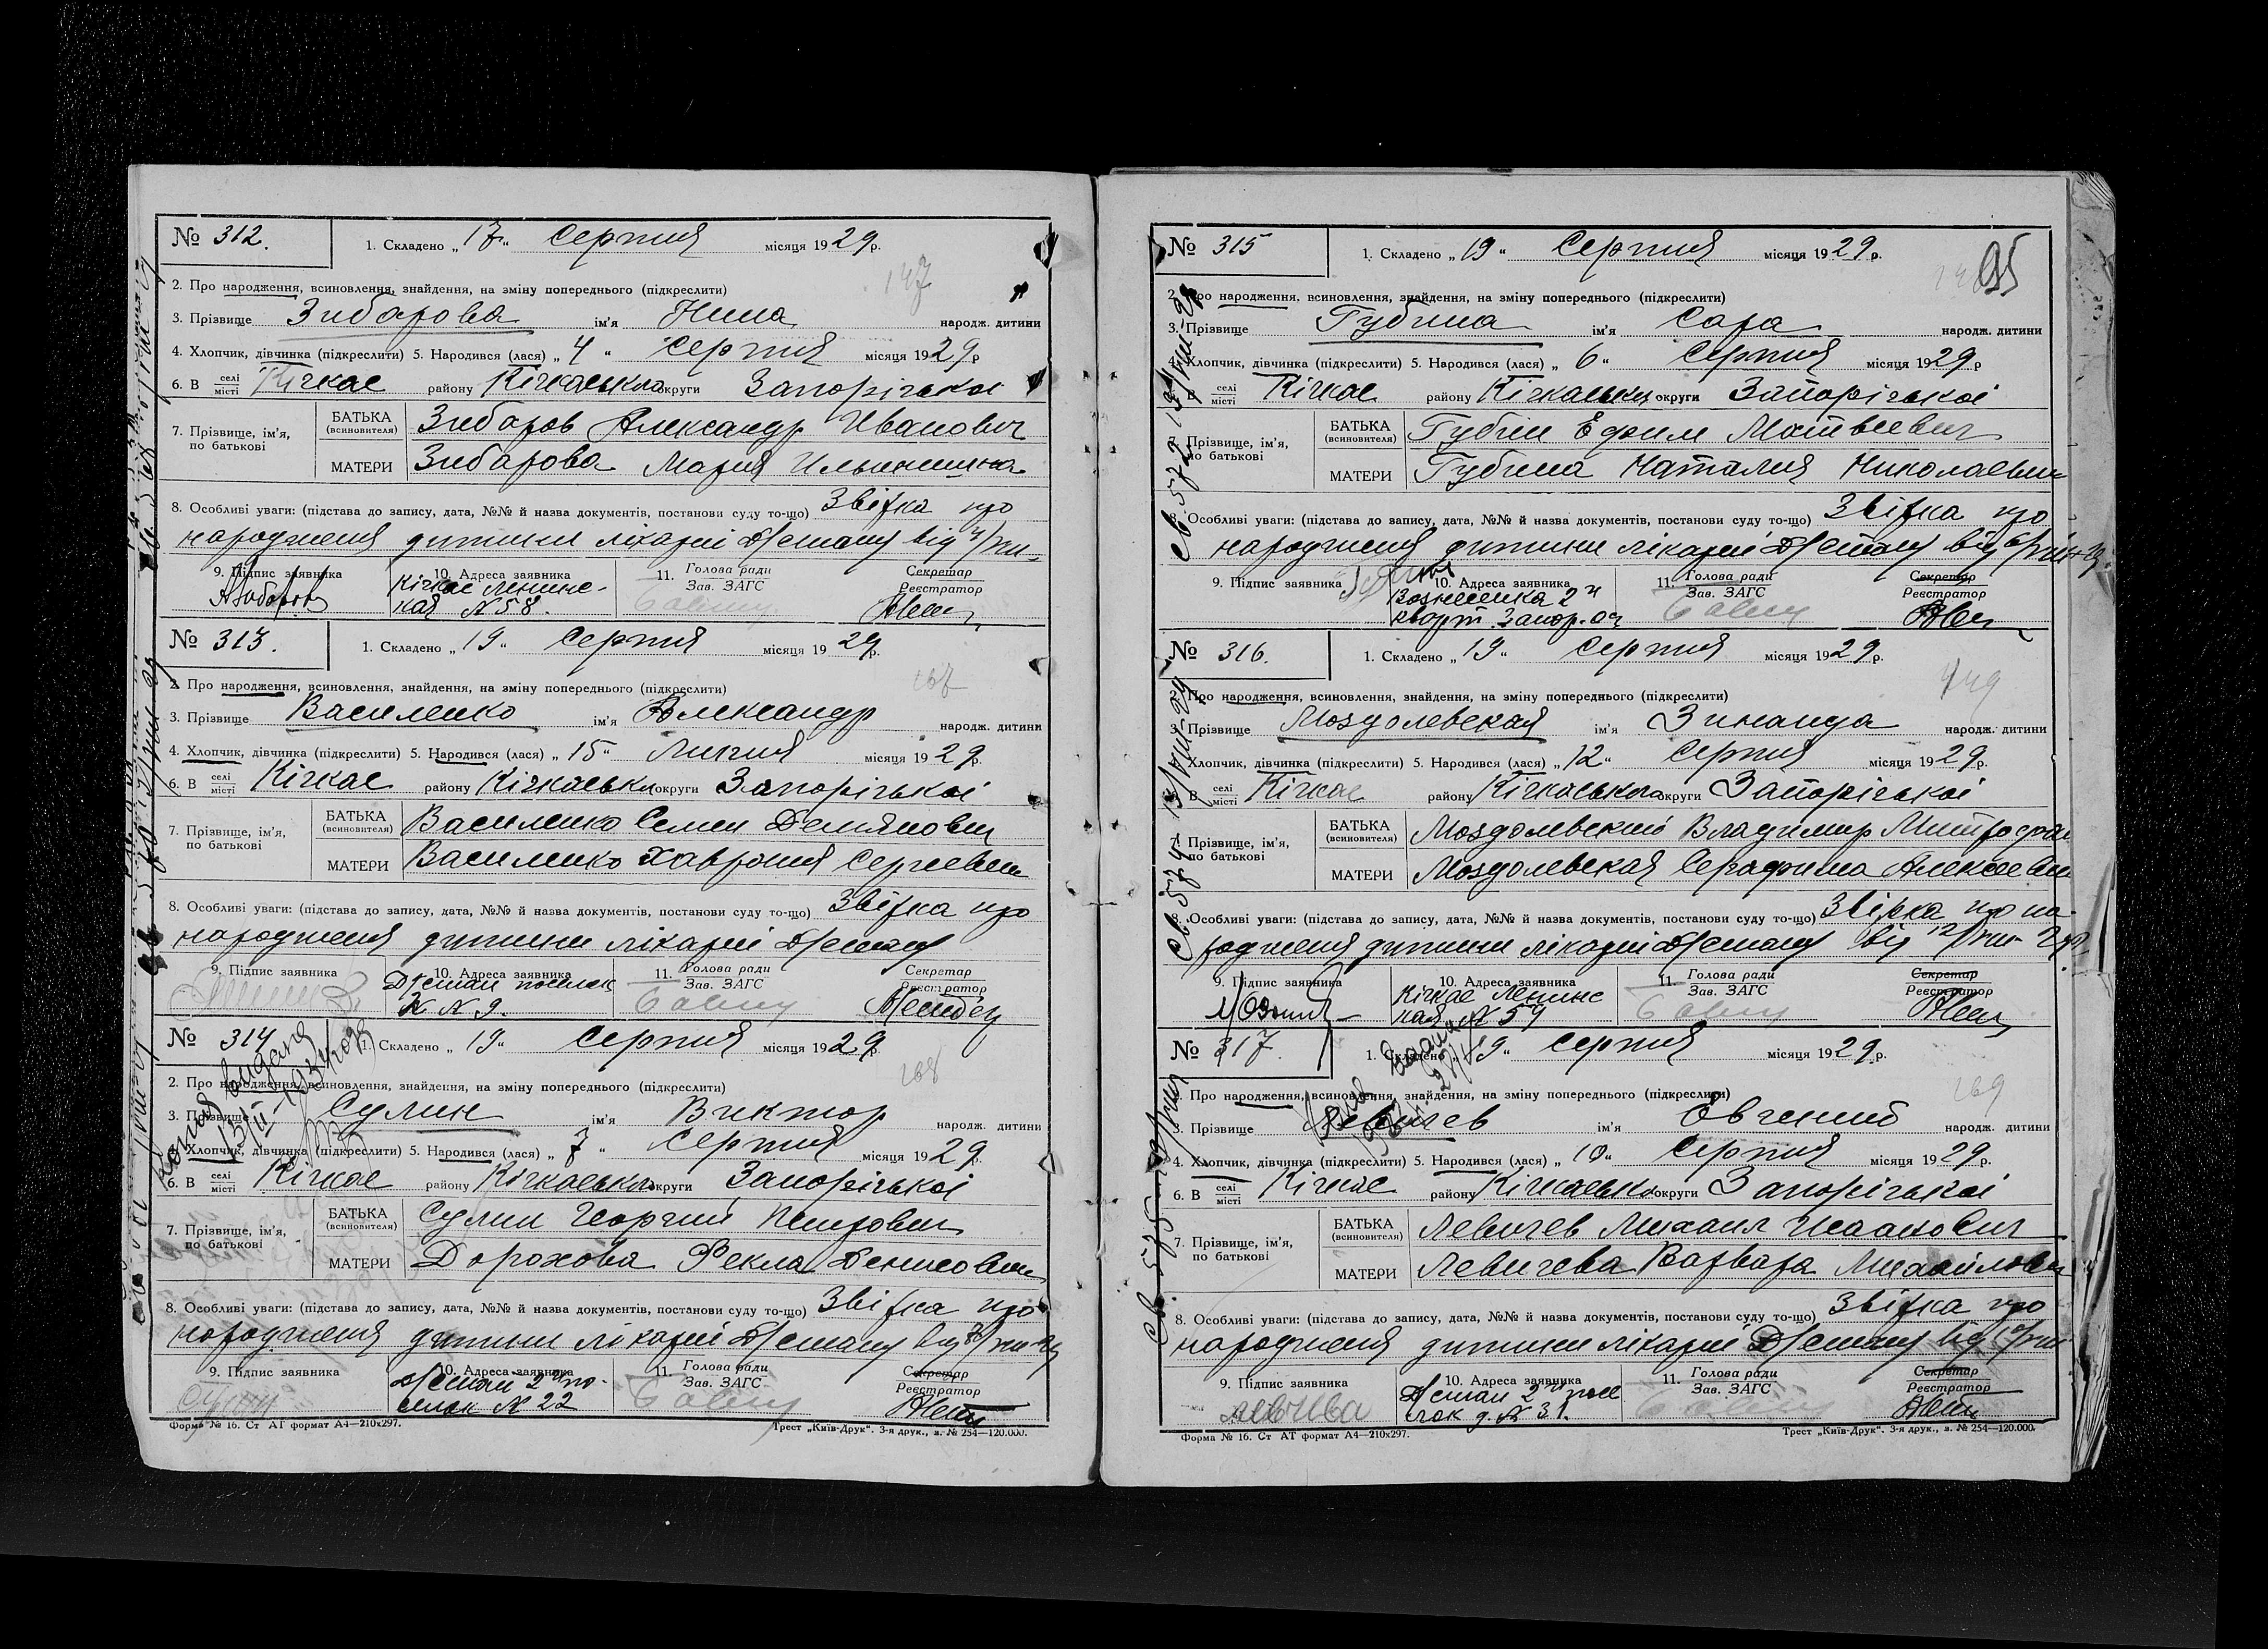 № 312.
1. Складено „17“ Серпня місяця 1929р.
147
2. Про народження, всиновлення, знайдення, на зміну попереднього (підкреслити)
3. Прізвище Зибарова ім'я Нина народж. дитини
4. Хлопчик, дівчинка (підкреслити) 5. Народився (лася) „4“ Серпня місяця 1929р
6. В селі місті Кічкас району Кічкаського округи Запорізької
7. Прізвище, ім'я, по батькові
БАТЬКА (всиновителя) Зибаров Александр Иванович
МАТЕРИ Зибарова Мария Ильинишна
8. Особливі уваги: (підстава до запису, дата, №№ й назва документів, постанови суду то-що) Звістка про
народження дитини лікарні Д/стану від
9. Підпис заявника
10. Адреса заявника Кічкас Ленинс-
кая N 58.
11. Голова ради Зав. ЗАГС
Секретар Реєстратор
№ 313.
1. Складено „19“ Серпня місяця 1929р.
2. Про народження, всиновлення, знайдення, на зміну попереднього (підкреслити)
3. Прізвище Василенко ім'я Александр народж. дитини
4. Хлопчик, дівчинка (підкреслити) 5. Народився (лася) „15“ Липня місяця 1929р.
6. В селі місті Кічкас району Кічкаського округи Запорізької
7. Прізвище, ім'я, по батькові
БАТЬКА (всиновителя) Василенко Семен Демянович
МАТЕРИ Василенко Хаврония Сергеевн
8. Особливі уваги: (підстава до запису, дата, №№ й назва документів, постанови суду то-що) Звістка про
народження дитини лікарні Д/стану
9. Підпис заявника
10. Адреса заявника Д/стан поселок
N 9.
11. Голова ради Зав. ЗАГС
Секретар Реєстратор
№ 314
1. Складено „19“ Серпня місяця 1929р.
168
Копия видана
2. Про народження, всиновлення, знайдення, на зміну попереднього (підкреслити)
3. Прізвище Сулин ім'я Виктор народж. дитини
4. Хлопчик, дівчинка (підкреслити) 5. Народився (лася) „7“ Серпня місяця 1929р.
6. В селі місті Кічкас району Кічкаського округи Запорізької
7. Прізвище, ім'я, по батькові
БАТЬКА (всиновителя) Сулин Георгий Петрович
МАТЕРИ Дорохова Фекла Денисовн
8. Особливі уваги: (підстава до запису, дата, №№ й назва документів, постанови суду то-що) Звістка про
народження дитини лікарні Д/стану від
9. Підпис заявника
10. Адреса заявника Д/стан 2й по-
селок N 22
11. Голова ради Зав. ЗАГС
Секретар Реєстратор
Форма № 16. Ст АТ формат А4—210х297.
Трест „Київ-Друк“. 3-я друк., з. № 254—120.000.
№ 315
1. Складено „19“ Серпня місяця 1929р.
95
2. Про народження, всиновлення, знайдення, на зміну попереднього (підкреслити)
3. Прізвище Губина ім'я Сара народж. дитини
4. Хлопчик, дівчинка (підкреслити) 5. Народився (лася) „6“ Серпня місяця 1929р
6. В селі місті Кічкас району Кічкаського округи Запорізької
7. Прізвище, ім'я, по батькові
БАТЬКА (всиновителя) Губин Ефим Матвеевич
МАТЕРИ Губина Наталия Николаевн
8. Особливі уваги: (підстава до запису, дата, №№ й назва документів, постанови суду то-що) Звістка про
народження дитини лікарні Д/стану від
9. Підпис заявника
10. Адреса заявника Вознесенка 2й
11. Голова ради Зав. ЗАГС
Секретар Реєстратор
№ 316.
1. Складено „19“ Серпня місяця 1929р.
149
2. Про народження, всиновлення, знайдення, на зміну попереднього (підкреслити)
3. Прізвище Моздолевская ім'я Зинаида народж. дитини
4. Хлопчик, дівчинка (підкреслити) 5. Народився (лася) „12“ Серпня місяця 1929р.
6. В селі місті Кічкас району Кічкаського округи Запорізької
7. Прізвище, ім'я, по батькові
БАТЬКА (всиновителя) Моздолевский Владимир Митрофан
МАТЕРИ Моздолевская Серафима Алексеевн
8. Особливі уваги: (підстава до запису, дата, №№ й назва документів, постанови суду то-що) Звістка про на-
родження дитини лікарні Д/стану від
9. Підпис заявника
10. Адреса заявника Кічкас Ленинс
кая N 59
11. Голова ради Зав. ЗАГС
Секретар Реєстратор
№ 317.
1. Складено „19“ Серпня місяця 1929р.
169
2. Про народження, всиновлення, знайдення, на зміну попереднього (підкреслити)
3. Прізвище Левичев ім'я Евгений народж. дитини
4. Хлопчик, дівчинка (підкреслити) 5. Народився (лася) „10“ Серпня місяця 1929р.
6. В селі місті Кічкас району Кічкаського округи Запорізької
7. Прізвище, ім'я, по батькові
БАТЬКА (всиновителя) Левичев Михаил Иванович
МАТЕРИ Левичева Варвара Михайловн
8. Особливі уваги: (підстава до запису, дата, №№ й назва документів, постанови суду то-що) Звістка про
народження дитини лікарні Д/стану від
9. Підпис заявника
10. Адреса заявника Д/стан 2й посе
лок д. N 31.
11. Голова ради Зав. ЗАГС
Секретар Реєстратор
Форма № 16. Ст АТ формат А4—210х297.
Трест „Київ-Друк“. 3-я друк., з. № 254—120.000.